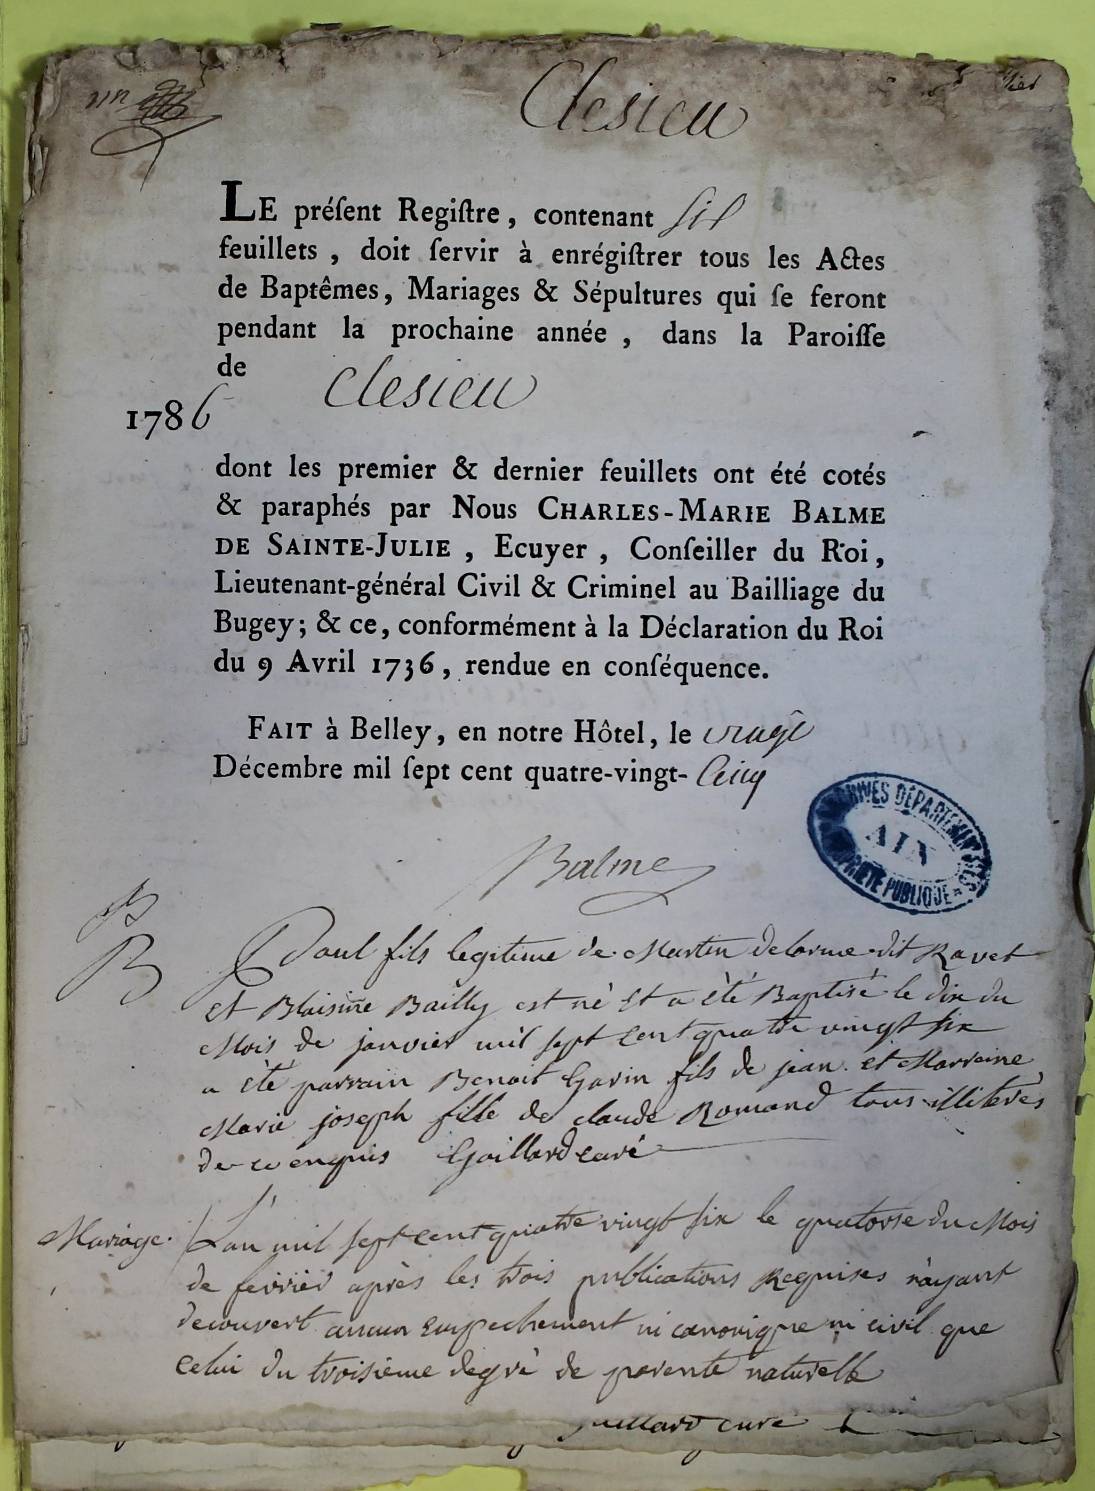 un
Clesieu
LE préſent Regiſtre, contenant six
feuillets, doit ſervir à enrégiſtrer tous les Actes
de Baptêmes, Mariages & Sépultures qui ſe feront
pendant la prochaine année, dans la Paroiſſe
de Clesieu
1786
dont les premier & dernier feuillets ont été cotés
& paraphés par Nous CHARLES-MARIE BALME
DE SAINTE-JULIE, Ecuyer, Conſeiller du Roi,
Lieutenant-général Civil & Criminel au Bailliage du
Bugey; & ce, conformément à la Déclaration du Roi
du 9 Avril 1736, rendue en conſéquence.
FAIT à Belley, en notre Hôtel, le
Décembre mil ſept cent quatre-vingt-Cinq
ARCHIVES DÉPARTEMENTALES
AIN
PROPRIÉTÉ PUBLIQUE
Balme
B
B Paul fils legitime de Martin delorme dit Ravet
et Blaisine Bailly est né et a été Baptisé le dix du
Mois de janvier mil sept cent quatre vingt six
a été parrain Benoit Gavin fils de jean et Marraine
Marie joseph fille de claude Romand tous illiterés
de ce enquis Gaillard curé
Mariage. L'an mil sept cent quatre vingt six le quatorse du Mois
de fevrier après les trois publications Requises n'ayant
decouvert aucun empechement ni canonique ni civil que
celui du troisieme degré de parenté naturelle
Gaillard curé